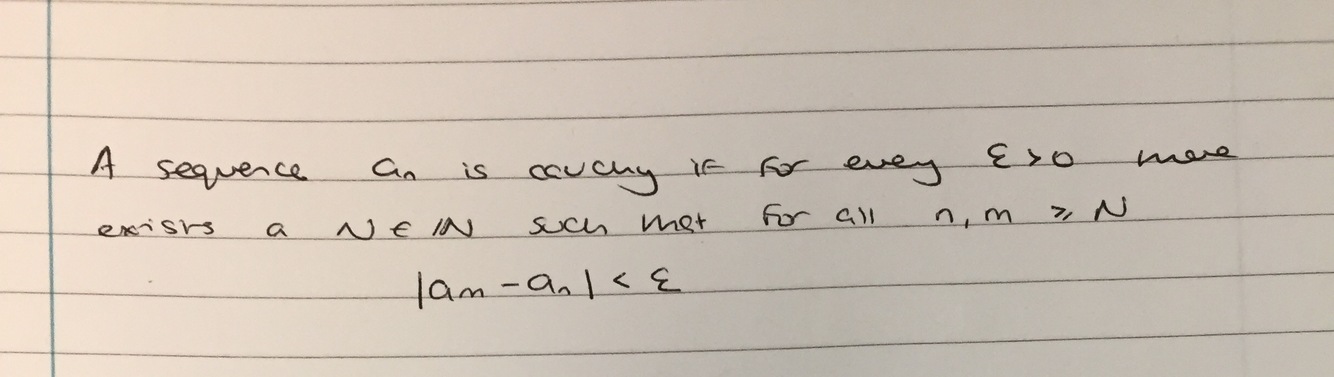 A sequence aₙ is cauchy if for every ε > 0 there
exists a N ∈ ℕ such that for all n, m ≥ N
|aₘ - aₙ| < ε